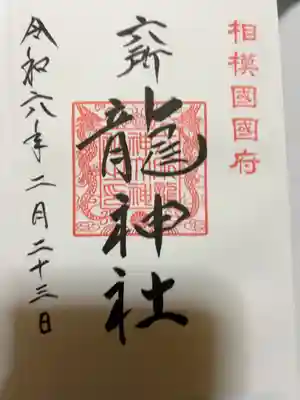 相模國國府
六所
龍神社
令和六年二月二十三日